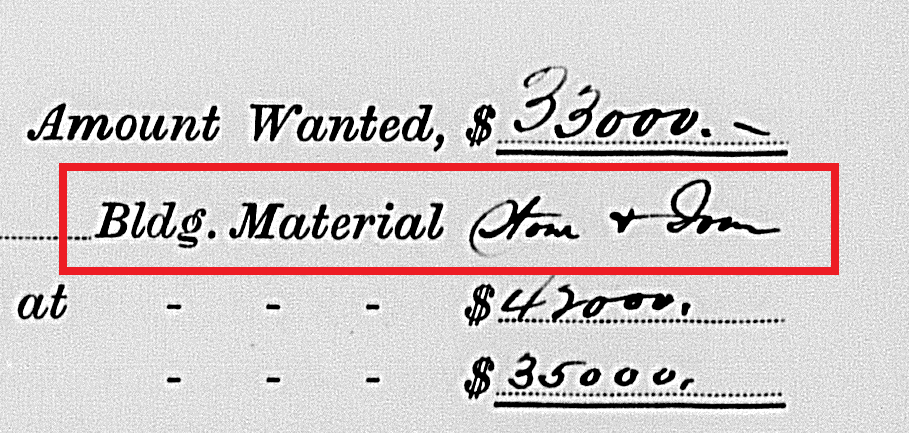 Amount Wanted, $ 33000. –
Bldg. Material Stone + Iron
at - - - $ 42000.
- - - $ 35000.